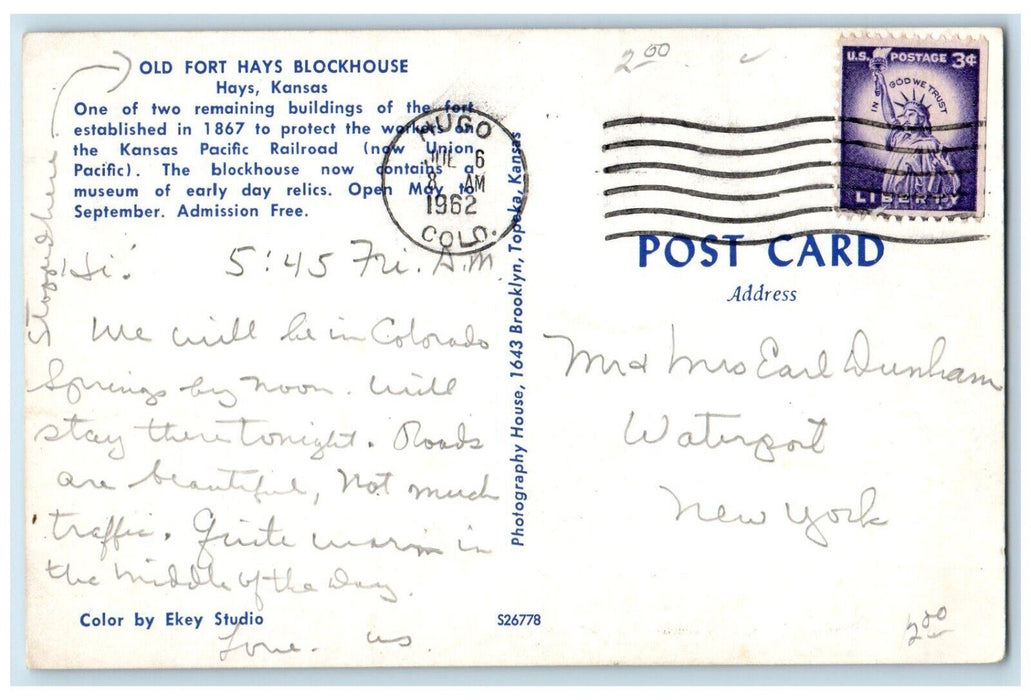 OLD FORT HAYS BLOCKHOUSE
Hays, Kansas
One of two remaining buildings of the fort
established in 1867 to protect the workers on
the Kansas Pacific Railroad (now Union
Pacific). The blockhouse now contains a
museum of early day relics. Open May to
September. Admission Free.
Stopped here
Hi: 5:45 Fri. A.M.
We will be in Colorado
Springs by noon. Will
stay there tonight. Roads
are beautiful, Not much
traffic. Quite warm in
the middle of the day.
Love. us.
Color by Ekey Studio
S26778
Photography House, 1643 Brooklyn, Topeka, Kansas
HUGO
6
8 AM
1962
COLO.
2.00
U.S. POSTAGE 3¢
IN GOD WE TRUST
LIBERTY
POST CARD
Address
Mr & Mrs Earl Dunham
Waterport
New York
2.00